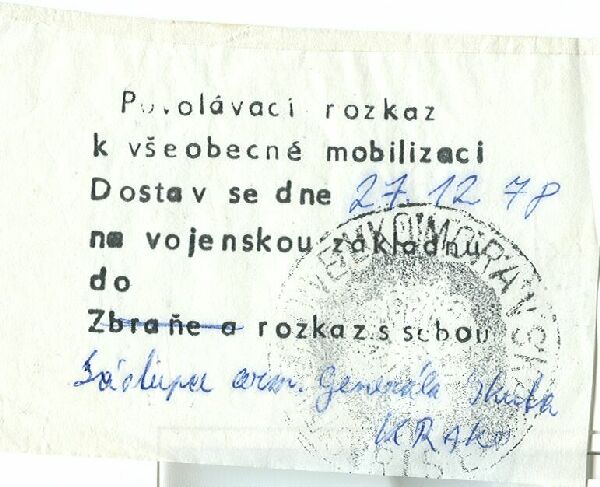 Povolávací rozkaz
k všeobecné mobilizaci
Dostav se dne 27. 12. 78
na vojenskou základnu
do
Zbraňe a rozkaz s sebou
Zástupce arm. Generála